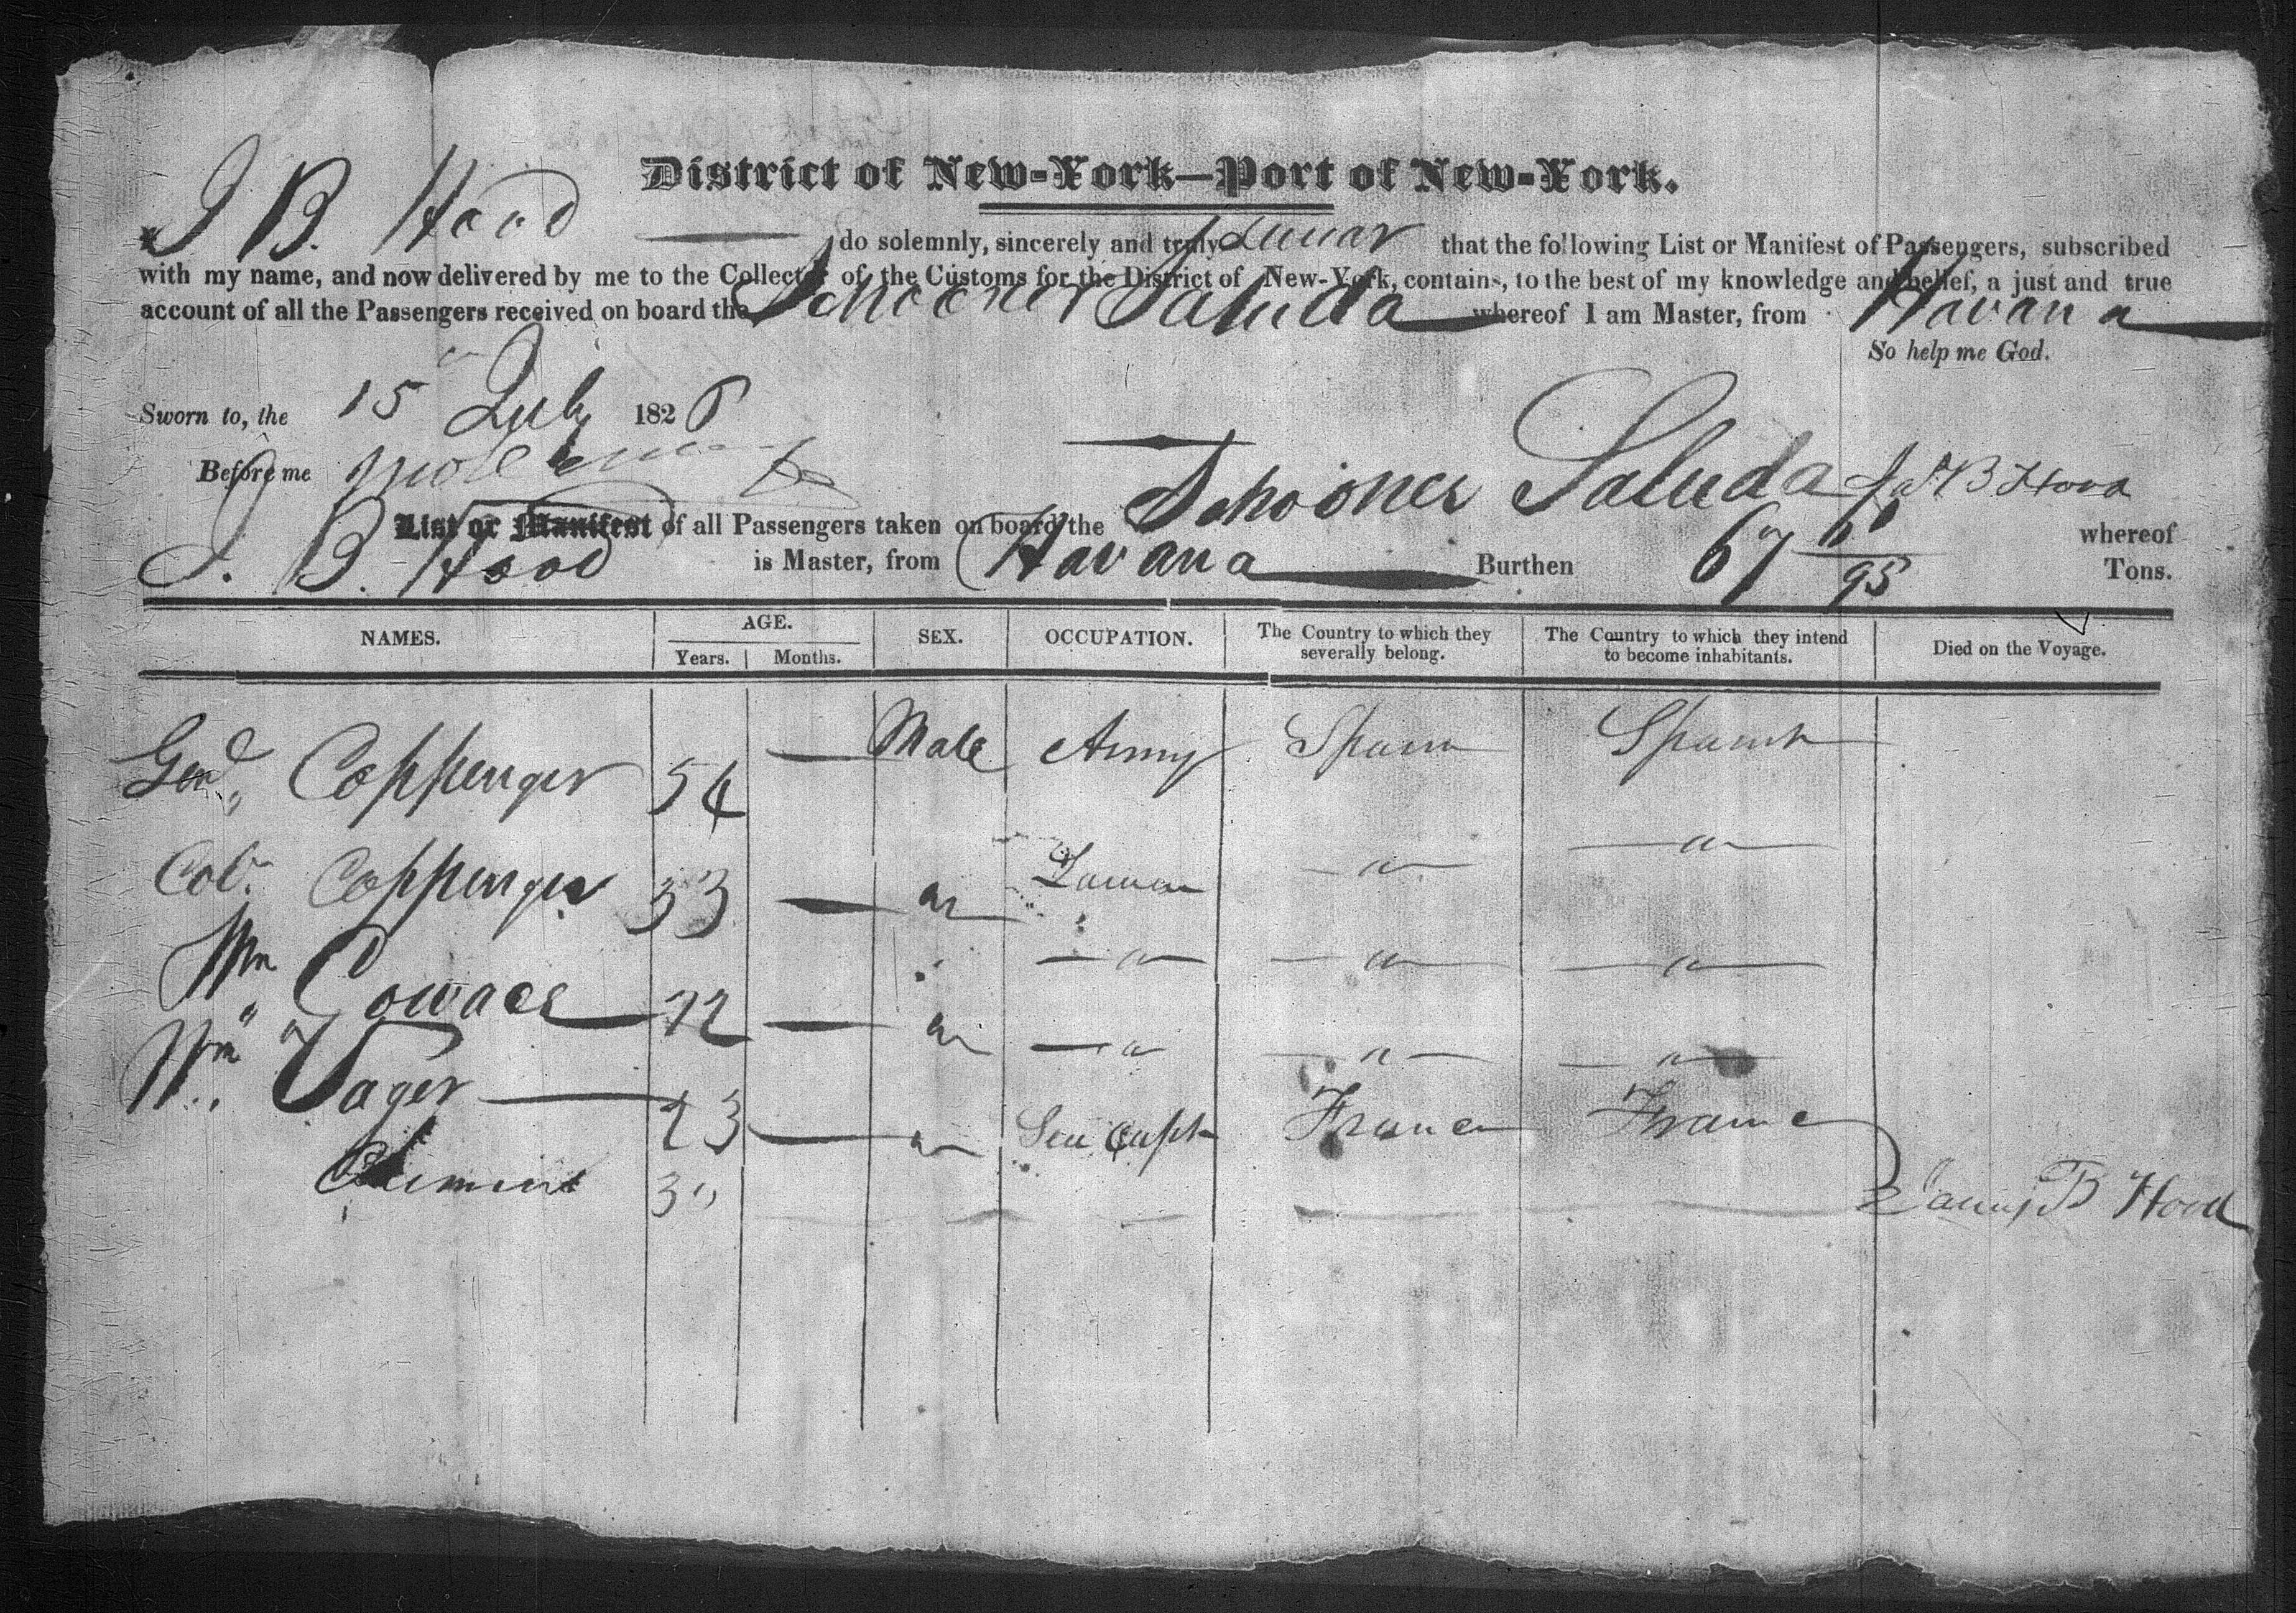 District of New-York—Port of New-York.
I J B. Hood do solemnly, sincerely and truly Swear that the following List or Manifest of Passengers, subscribed
with my name, and now delivered by me to the Collector of the Customs for the District of New-York, contains, to the best of my knowledge and belief, a just and true
account of all the Passengers received on board the Schooner Saluda whereof I am Master, from Havana
So help me God.
Sworn to, the 15 July 1826
Before me
Jas B Hood
List or Manifest of all Passengers taken on board the Schooner Saluda whereof
J. B. Hood is Master, from Havana Burthen 67 /95 Tons.
NAMES. AGE. Years. Months. SEX. OCCUPATION. The Country to which they severally belong. The Country to which they intend to become inhabitants. Died on the Voyage.
Genl. Coppenger 54 — Male Army Spain Spain
Col. Coppenger 33 — " — " — — " —
Wm. 22 — " — " — — " — — " —
Wm. Yager 23 — " — " — — " — — " —
Clement 30 Sea Capt France France
James B Hood